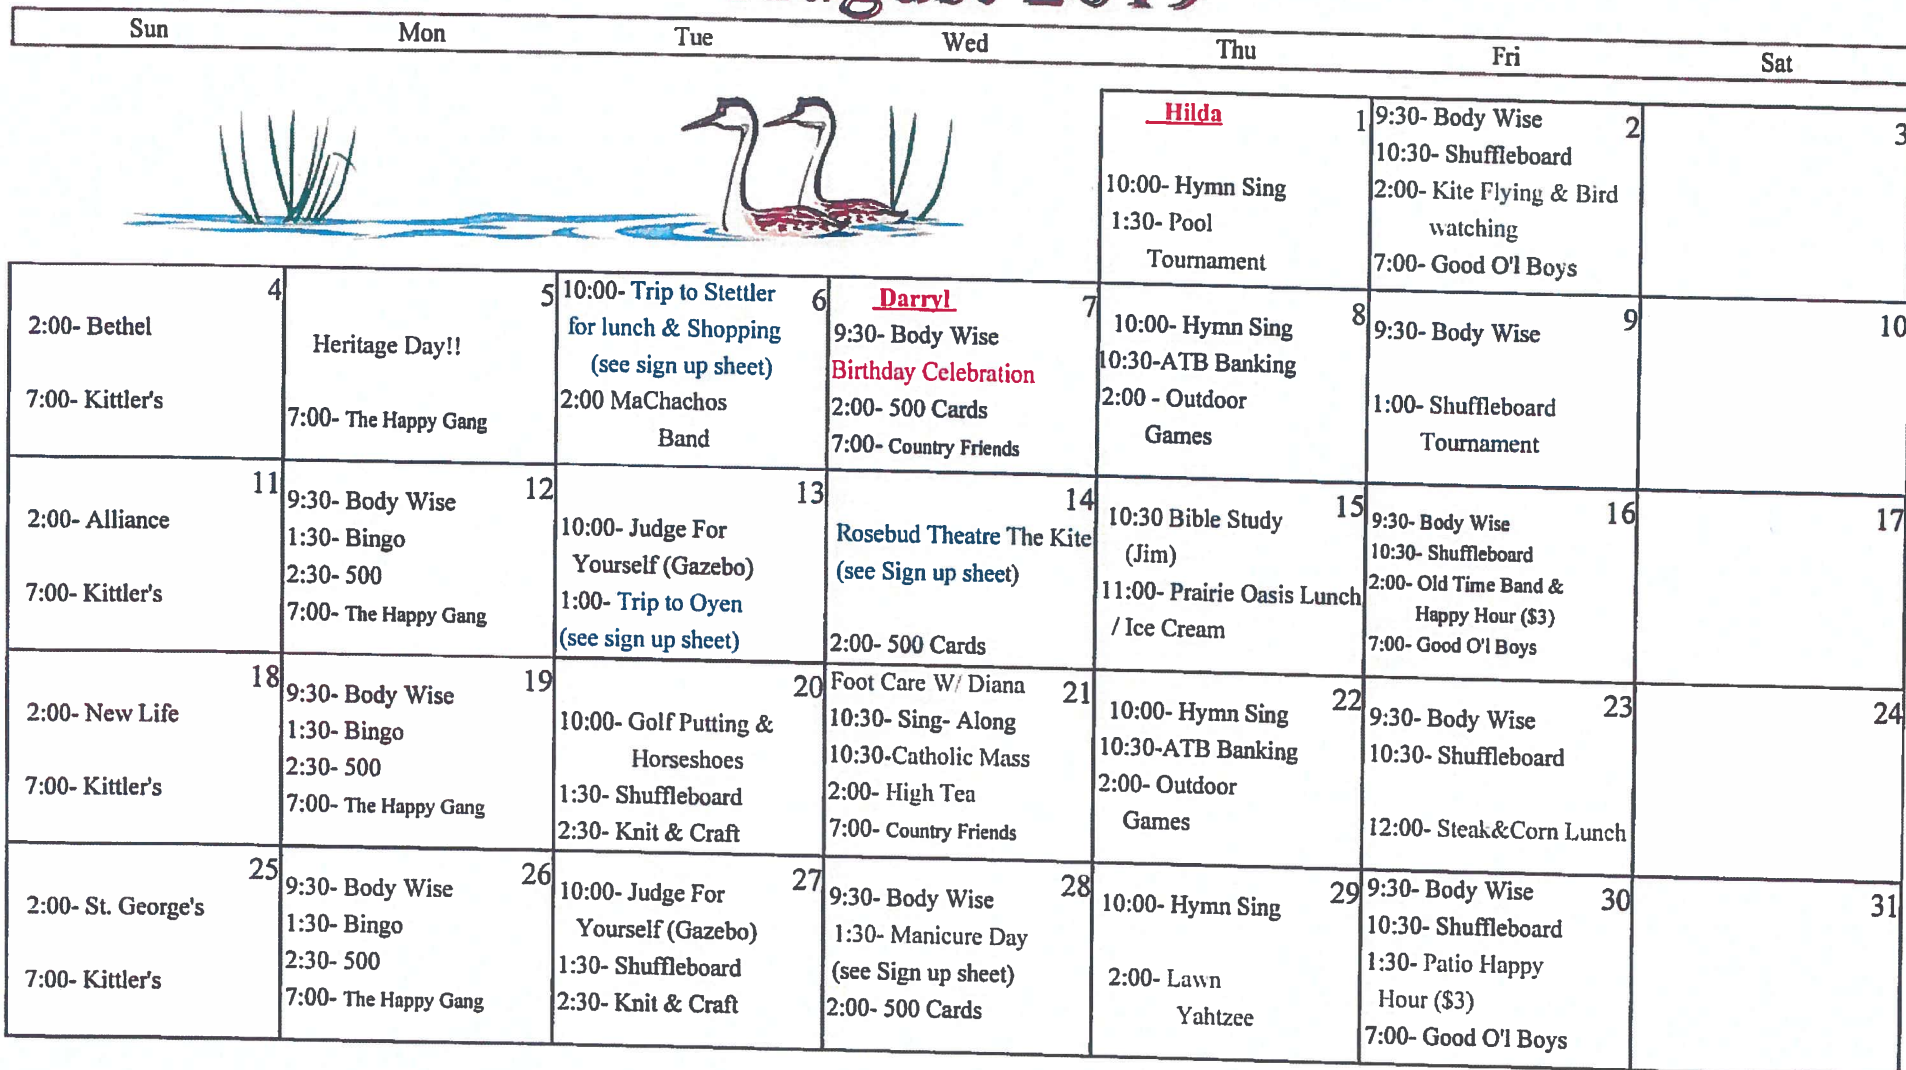 August 2019
Sun Mon Tue Wed Thu Fri Sat
Hilda 1
10:00- Hymn Sing
1:30- Pool
Tournament
9:30- Body Wise 2
10:30- Shuffleboard
2:00- Kite Flying & Bird
watching
7:00- Good O'l Boys
3
4
2:00- Bethel
7:00- Kittler's
5
Heritage Day!!
7:00- The Happy Gang
10:00- Trip to Stettler 6
for lunch & Shopping
(see sign up sheet)
2:00 MaChachos
Band
Darryl 7
9:30- Body Wise
Birthday Celebration
2:00- 500 Cards
7:00- Country Friends
8
10:00- Hymn Sing
10:30-ATB Banking
2:00 - Outdoor
Games
9
9:30- Body Wise
1:00- Shuffleboard
Tournament
10
11
2:00- Alliance
7:00- Kittler's
12
9:30- Body Wise
1:30- Bingo
2:30- 500
7:00- The Happy Gang
13
10:00- Judge For
Yourself (Gazebo)
1:00- Trip to Oyen
(see sign up sheet)
14
Rosebud Theatre The Kite
(see Sign up sheet)
2:00- 500 Cards
10:30 Bible Study 15
(Jim)
11:00- Prairie Oasis Lunch
/ Ice Cream
9:30- Body Wise 16
10:30- Shuffleboard
2:00- Old Time Band &
Happy Hour ($3)
7:00- Good O'l Boys
17
18
2:00- New Life
7:00- Kittler's
19
9:30- Body Wise
1:30- Bingo
2:30- 500
7:00- The Happy Gang
20
10:00- Golf Putting &
Horseshoes
1:30- Shuffleboard
2:30- Knit & Craft
Foot Care W/ Diana 21
10:30- Sing- Along
10:30-Catholic Mass
2:00- High Tea
7:00- Country Friends
22
10:00- Hymn Sing
10:30-ATB Banking
2:00- Outdoor
Games
23
9:30- Body Wise
10:30- Shuffleboard
12:00- Steak&Corn Lunch
24
25
2:00- St. George's
7:00- Kittler's
26
9:30- Body Wise
1:30- Bingo
2:30- 500
7:00- The Happy Gang
27
10:00- Judge For
Yourself (Gazebo)
1:30- Shuffleboard
2:30- Knit & Craft
28
9:30- Body Wise
1:30- Manicure Day
(see Sign up sheet)
2:00- 500 Cards
29
10:00- Hymn Sing
2:00- Lawn
Yahtzee
9:30- Body Wise 30
10:30- Shuffleboard
1:30- Patio Happy
Hour ($3)
7:00- Good O'l Boys
31